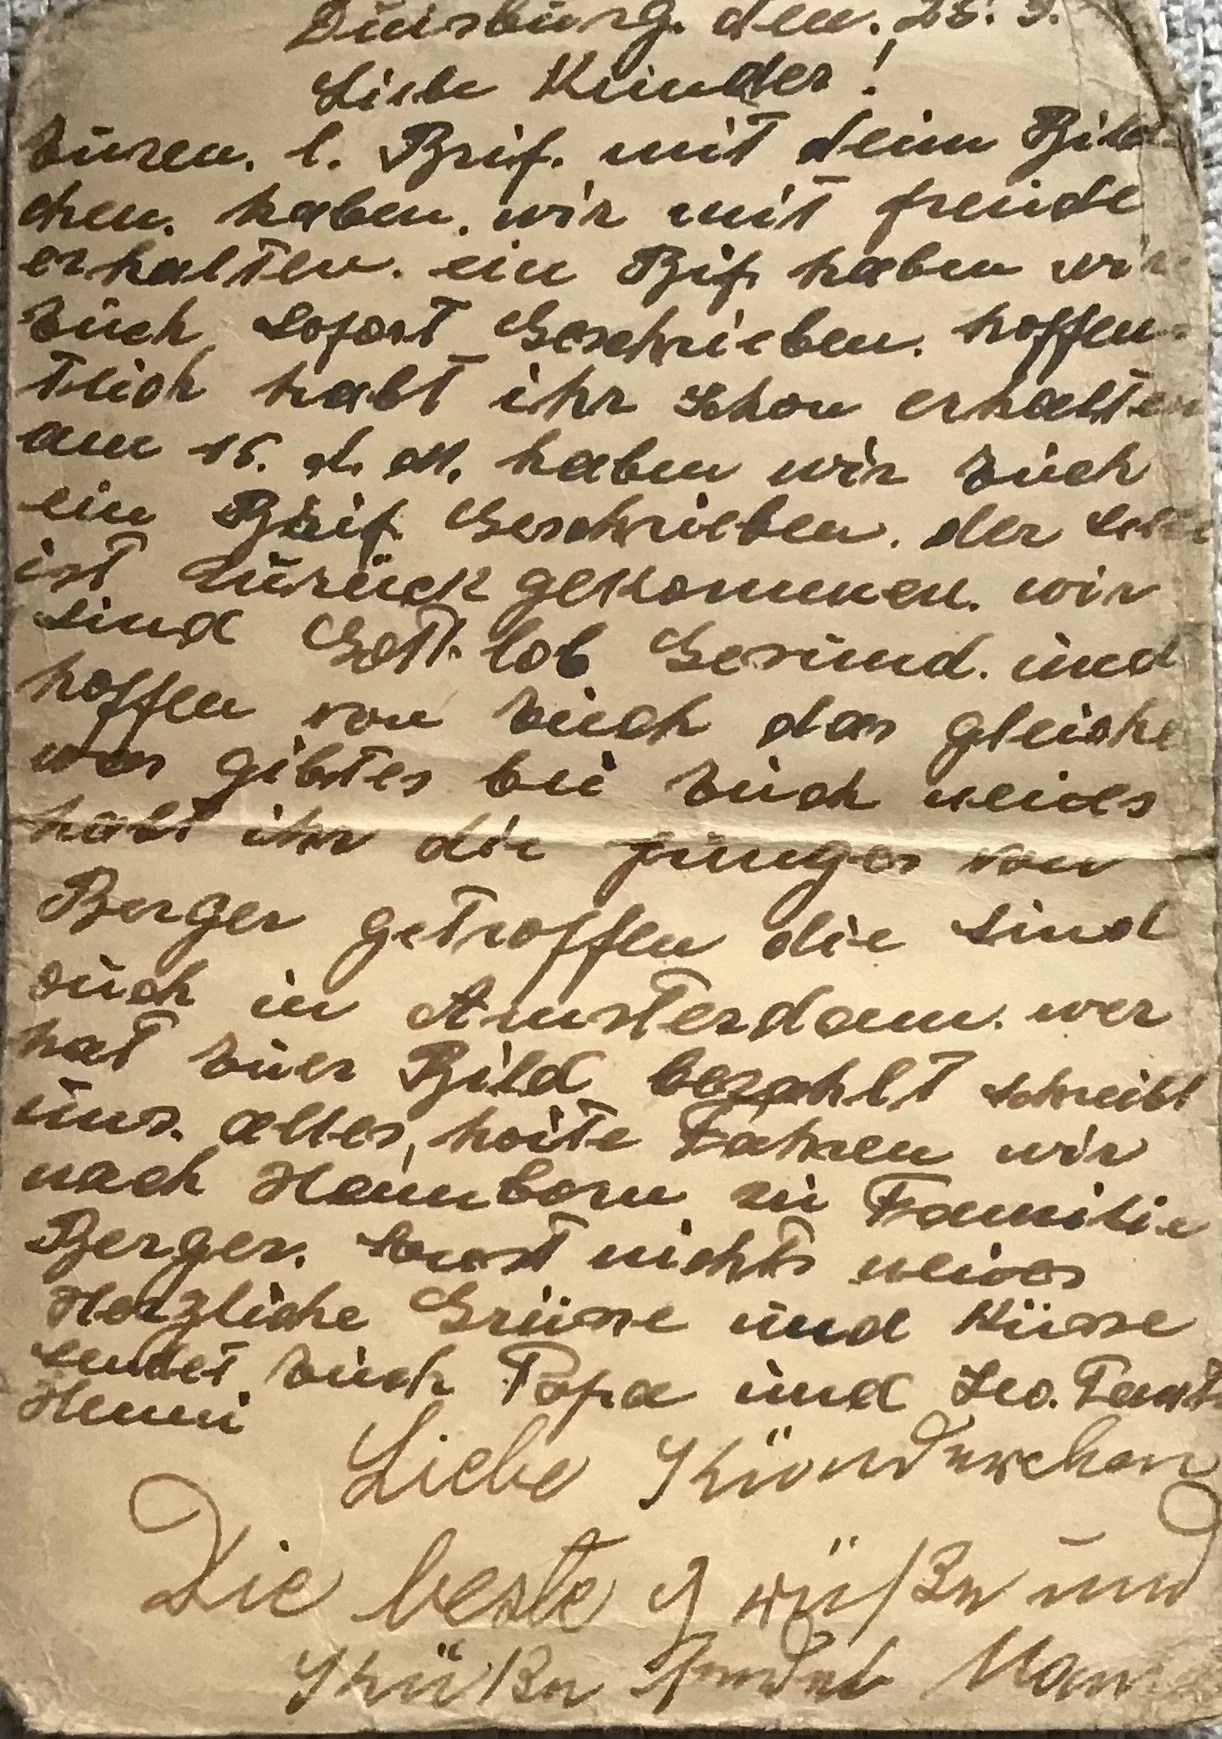 Duisburg. den. 28. 3.
Liebe Kinder!
Euren. l. Brif. mit deim Bild
chen. haben. wir mit freude
erhalten. ein Bif. haben wir
Euch Sofort Geschrieben. hoffen-
tlich habt ihr schon erhalten
am 16. d. M. haben wir Euch
ein Brif. Geschrieben. der
ist Zurück gekommen. wir
sind Gott. lob Gesund. und
hoffen von Euch das gleiche
was gibtes bei Euch neues
habt ihr die junges von
Berger getroffen die Sind
auch in Amsterdam. wer
hat Euer Bild bezahlt schreibt
uns. alles, hoite Fahren wir
nach Hamborn zu Familie
Berger. Sonst nichts neues
Herzliche Grüsse und Küsse
sendet Euch Papa und Leo. Tante
Henni
Liebe Künderchen
Die beste grüßn und
Küßn sendet Mama